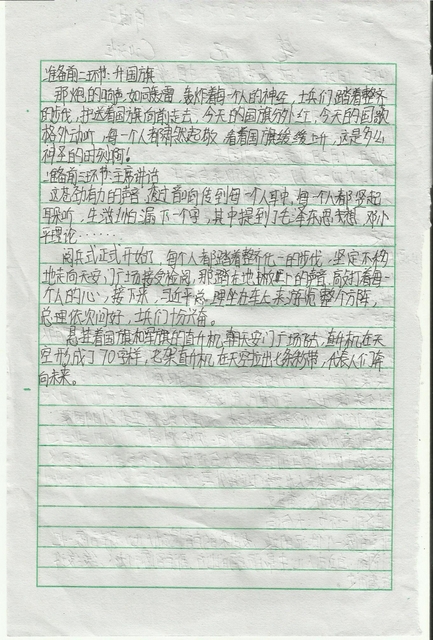 准备前二环节：升国旗
那炮的响声如同天雷，轰炸着每一个人的神经，士兵们踏着整齐
的步伐，护送着国旗向前走去，今天的国旗分外红，今天的国歌
格外动听，每一个人都肃然起敬，看着国旗缓缓上升，这是多么
神圣的时刻啊！
准备前三环节：主席讲话
这苍劲有力的声音，透过音响传到每一个人耳中，每一个人都竖起
耳朵听，生怕漏下一个字，其中提到了毛泽东思想，邓小
平理论……
阅兵式正式开始了，每个人都踏着整齐化一的步伐，坚定不移
地走向天安门广场接受检阅，那踏在地板上的声音，敲打着每一
个人的心，接下来，习近平总理坐在车上来一个方阵，
总理依次问好，士兵们十分兴奋。
悬挂着国旗和军旗的直升机，朝天安门广场飞去，直升机在天
空形成了70字样，七架直升机在天空拉出七条彩带，代表人们奔
向未来。